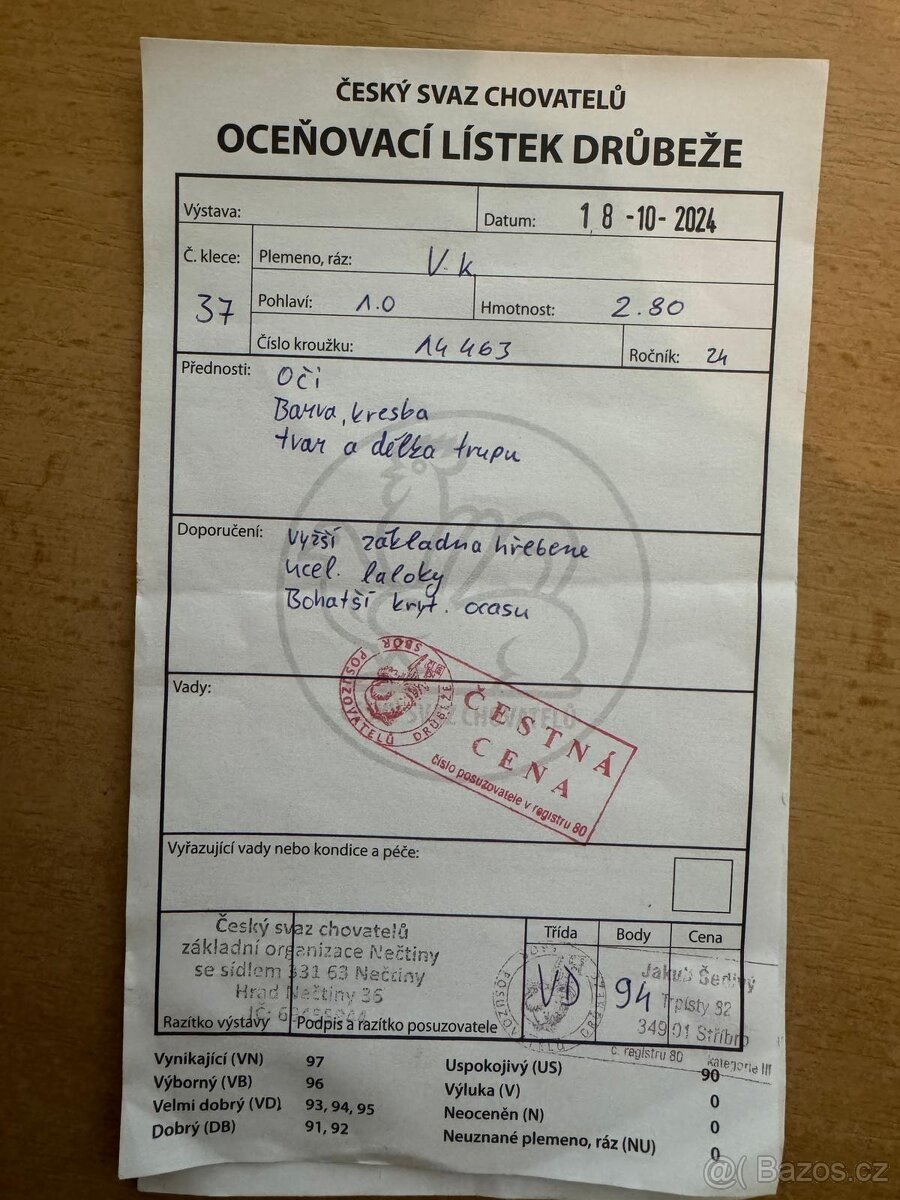 ČESKÝ SVAZ CHOVATELŮ
OCEŇOVACÍ LÍSTEK DRŮBEŽE
Výstava:
Datum: 18-10-2024
Č. klece: 37
Plemeno, ráz: V.k
Pohlaví: 1.0
Hmotnost: 2.80
Číslo kroužku: 14463
Ročník: 24
Přednosti: Oči
Barva, kresba
tvar a délka trupu
Doporučení: Vyšší základna hřebene
ucel. laloky
Bohatší kryt. ocasu
SBOR POSUZOVATELŮ DRŮBEŽE
SVAZ CHOVATELŮ
ČESTNÁ
CENA
číslo posuzovatele v registru 80
Vady:
Vyřazující vady nebo kondice a péče:
Český svaz chovatelů
základní organizace Nečtiny
se sídlem 331 63 Nečtiny
Hrad Nečtiny 36
IČ:
Razítko výstavy
Podpis a razítko posuzovatele
Třída Body Cena
VD 94
Jakub Šedivý
Trpísty 82
349 01 Stříbro
č. registru 80 kategorie III
Vynikající (VN) 97
Výborný (VB) 96
Velmi dobrý (VD) 93, 94, 95
Dobrý (DB) 91, 92
Uspokojivý (US) 90
Výluka (V) 0
Neoceněn (N) 0
Neuznané plemeno, ráz (NU) 0
@( Bazos.cz